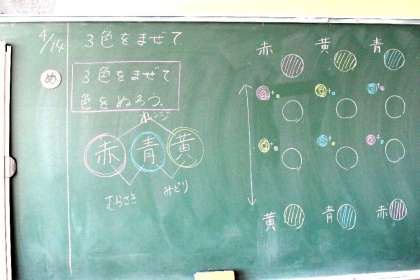 4/14
3色をまぜて
め
3色をまぜて
色をぬろう。
オレンジ
赤 青 黄
むらさき みどり
赤 黄 青
黄 青 赤